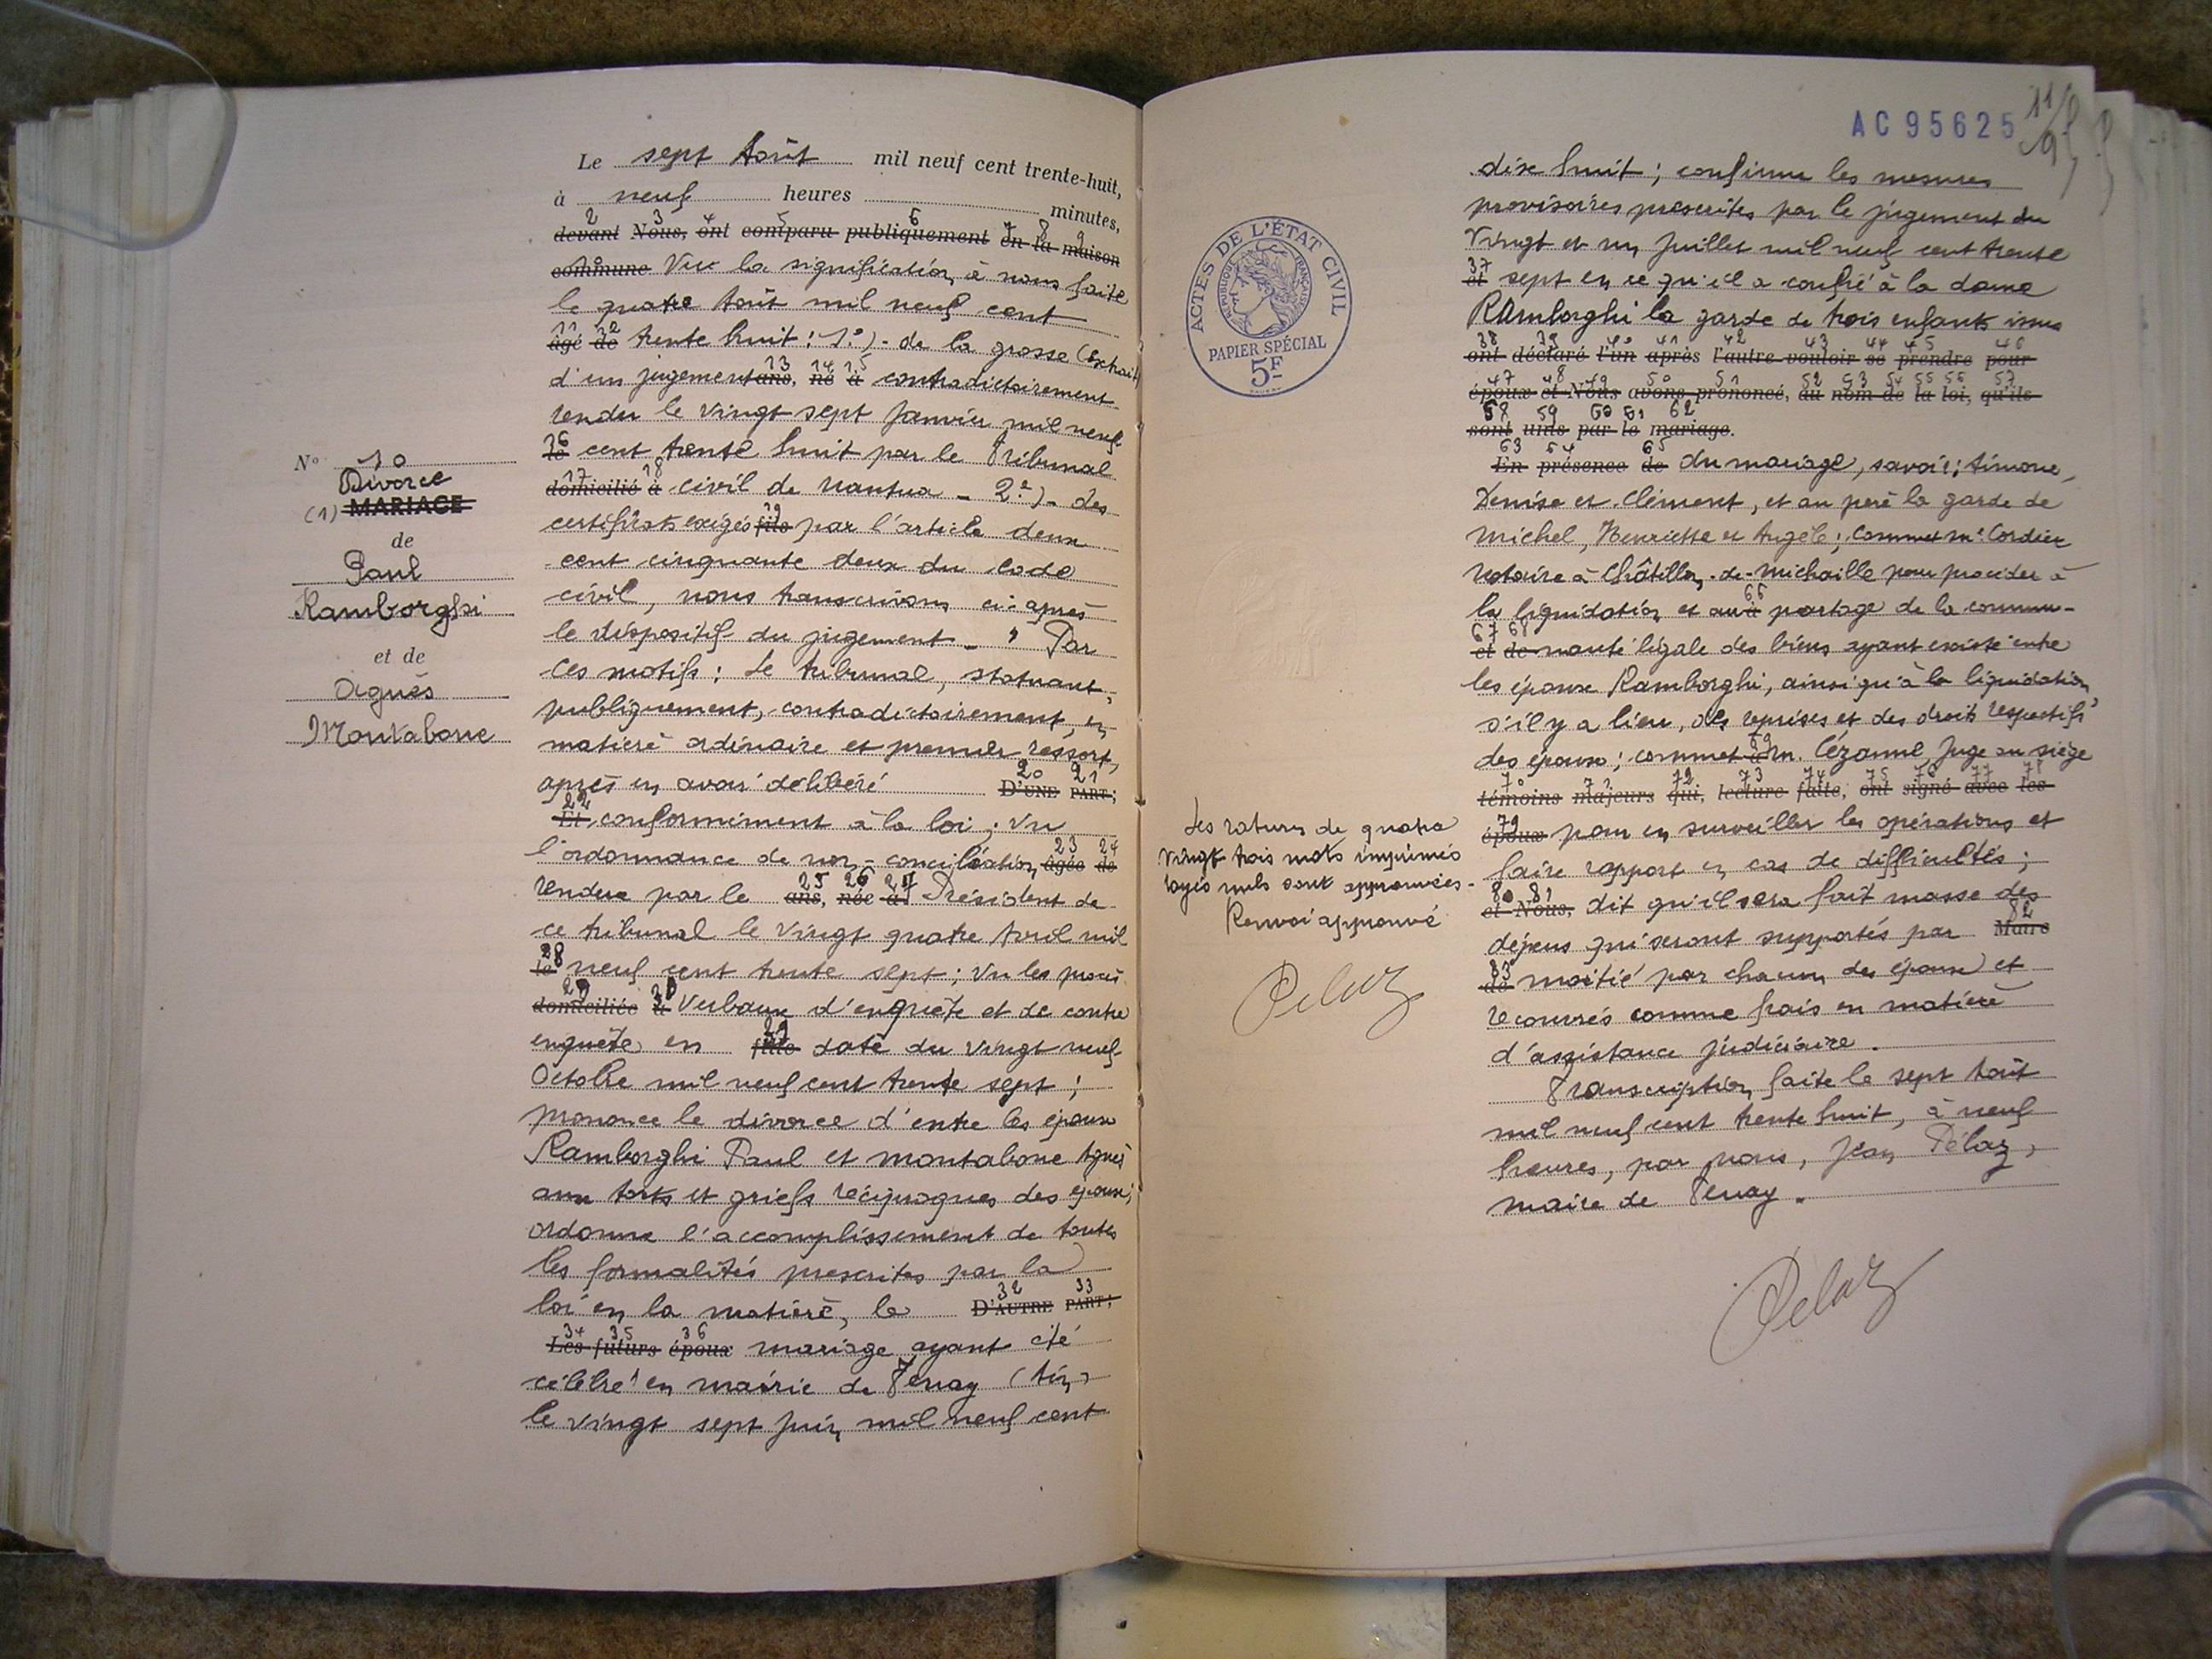 Le sept Août mil neuf cent trente-huit,
à neuf heures minutes,
2 3 4 5 6 7 8 9
devant Nous, ont comparu publiquement en la maison
commune Vu la signification à nous faite
le quatre Août mil neuf cent
11 12
âgé de trente huit : 1°) - de la grosse (Extrait)
13 14 15
d'un jugement ans, né à contradictoirement
rendu le vingt sept Janvier mil neuf
16
le cent trente huit par le Tribunal
17 18
domicilié à civil de Nantua - 2°) - des
19
certificats exigés fils par l'article deux
cent cinquante deux du Code
civil, nous transcrivons ci-après
le dispositif du jugement - " Par
ces motifs : Le tribunal, statuant
publiquement, contradictoirement, en
matière ordinaire et premier ressort,
20 21
après en avoir délibéré D'UNE PART;
22
Et conformément à la loi ; Vu
23 24
l'ordonnance de non-conciliation âgée de
25 26 27
rendue par le ans, née à Président de
ce tribunal le vingt quatre Avril mil
28
le neuf cent trente sept ; Vu les procès
29 30
domiciliée à Verbaux d'enquête et de contre
enquête en fille date du vingt neuf
Octobre mil neuf cent trente sept ;
prononce le divorce d'entre les époux
Ramborghi Paul et Montabone Agnès
aux torts et griefs réciproques des époux ;
ordonne l'accomplissement de toutes
les formalités prescrites par la
32 33
loi en la matière, le D'AUTRE PART;
34 35 36
Les futurs époux mariage ayant été
célébré en mairie de Tenay (Ain)
le vingt sept Juin mil neuf cent
N° 10
Divorce
(1) MARIAGE
de
Paul
Ramborghi
et de
Agnès
Montabone
AC 95625
ACTES DE L'ÉTAT CIVIL
RÉPUBLIQUE FRANÇAISE
PAPIER SPÉCIAL
5F
dix huit ; confirme les mesures
provisoires prescrites par le jugement du
vingt et un Juillet mil neuf cent trente
37
et sept en ce qu'il a confié à la dame
Ramborghi la garde de trois enfants issus
38 39 40 41 42 43 44 45 46
ont déclaré l'un après l'autre vouloir se prendre pour
47 48 49 50 51 52 53 54 55 56 57
époux et Nous avons prononcé, au nom de la loi, qu'ils
58 59 60 61 62
sont unis par le mariage.
63 64 65
En présence de du mariage, savoir ; Simone,
Denise et Clément, et au père la garde de
Michel, Henriette et Angèle ; Commet Me Cordier
Notaire à Châtillon-de-Michaille pour procéder à
66
la liquidation et au à partage de la commu-
67 68
et de nauté légale des biens ayant existé entre
les époux Ramborghi, ainsi qu'à la liquidation
s'il y a lieu, des reprises et des droits respectifs
69
des époux ; commet à M. Cézanne, Juge au siège
70 71 72 73 74 75 76 77 78
témoins majeurs qui, lecture faite, ont signé avec les
79
époux pour en surveiller les opérations et
faire rapport en cas de difficultés ;
80 81
et Nous, dit qu'il sera fait masse des
82
dépens qui seront supportés par Maire
83
de moitié par chacun des époux et
recouvrés comme frais en matière
d'assistance judiciaire.
Transcription faite le sept Août
mil neuf cent trente huit, à neuf
heures, par nous, Jean Pélaz,
maire de Tenay.
Pelaz
Les ratures de quatre
vingt trois mots imprimés
rayés nuls sont approuvées.
Renvoi approuvé
Pelaz